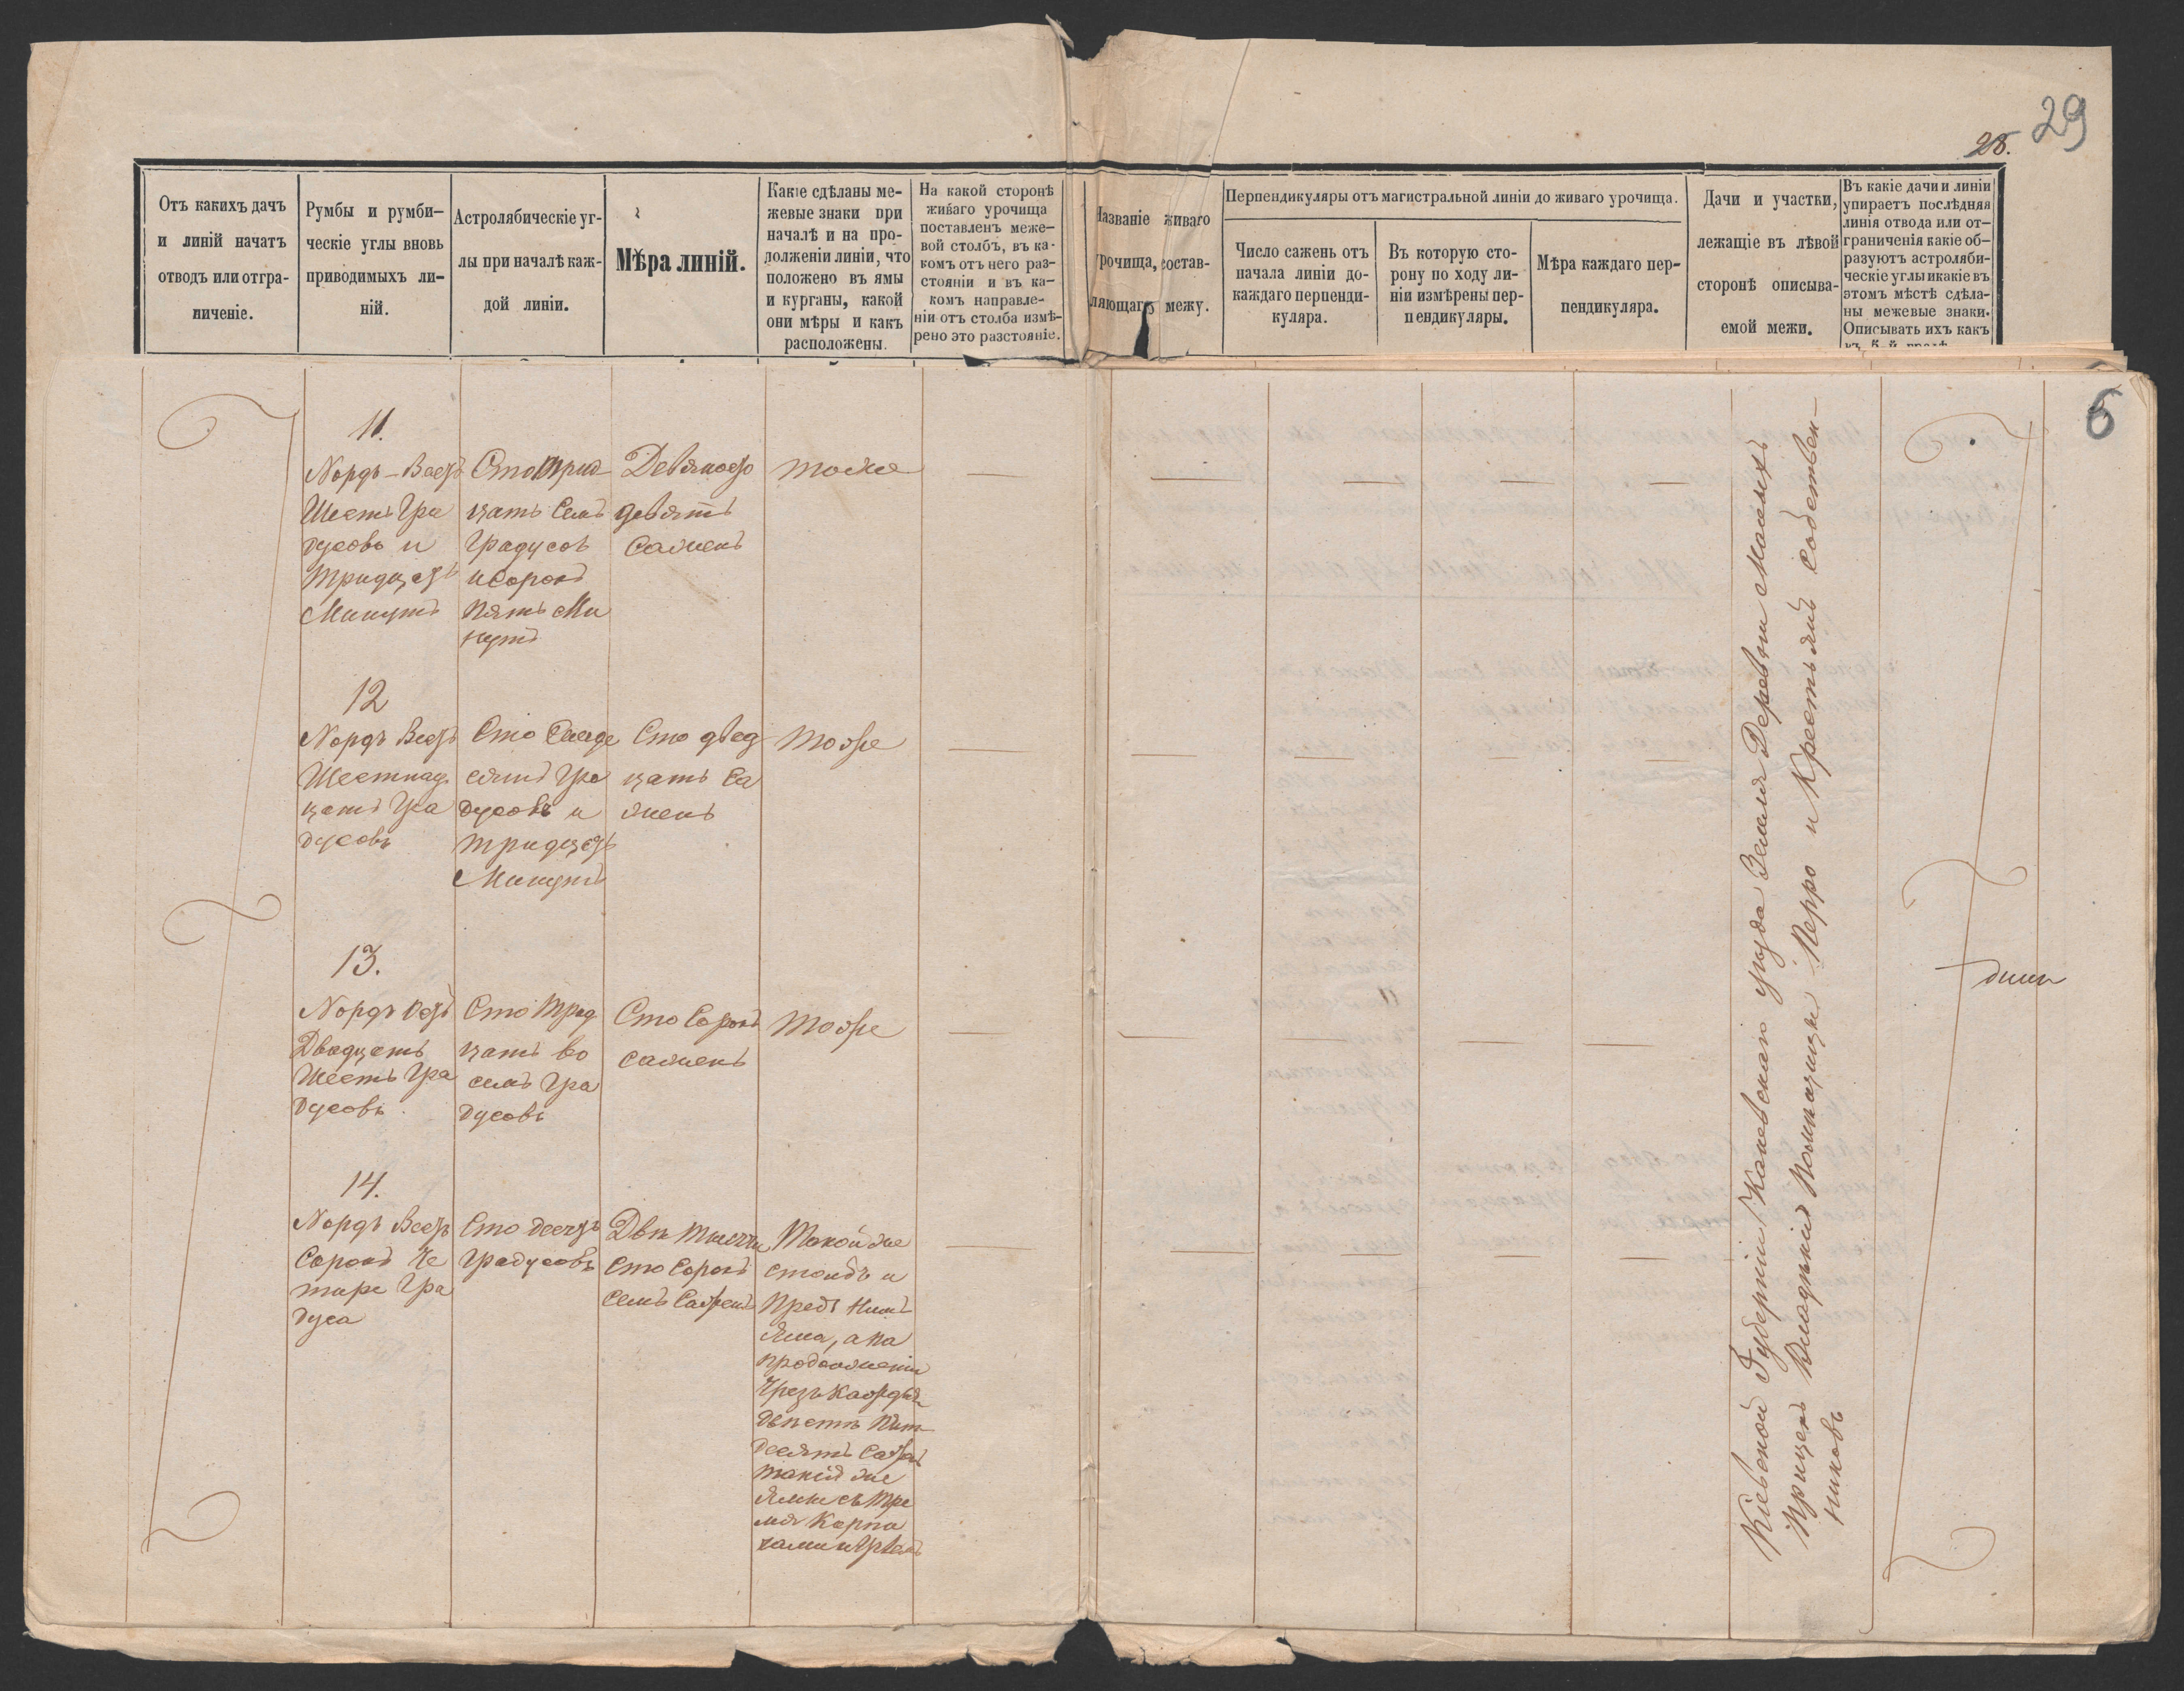 29
28.
Отъ какихъ дачъ
и линій начатъ
отводъ или отгра-
ниченіе.
Румбы и румби-
ческіе углы вновь
приводимыхъ ли-
ній.
Астролябическіе уг-
лы при началѣ каж-
дой линіи.
Мѣра линій.
Какіе сдѣланы ме-
жевые знаки при
началѣ и на про-
долженіи линіи, что
положено въ ямы
и курганы, какой
они мѣры и какъ
расположены.
На какой сторонѣ
живаго урочища
поставленъ меже-
вой столбъ, въ ка-
комъ отъ него раз-
стояніи и въ ка-
комъ направле-
ніи отъ столба измѣ-
рено это разстояніе.
Названіе живаго
урочища, состав-
ляющаго межу.
Перпендикуляры отъ магистральной линіи до живаго урочища.
Число сажень отъ
начала линіи до
каждаго перпенди-
куляра.
Въ которую сто-
рону по ходу ли-
ніи измѣрены пер-
пендикуляры.
Мѣра каждаго пер-
пендикуляра.
Дачи и участки,
лежащіе въ лѣвой
сторонѣ описыва-
емой межи.
Въ какіе дачи и линіи
упираетъ послѣдняя
линія отвода или от-
граниченія какіе об-
разуютъ астроляби-
ческіе углы и какіе въ
этомъ мѣстѣ сдѣла-
ны межевые знаки.
Описывать ихъ какъ
въ 5-й графѣ
6
11.
Nордъ-Вестъ
Шесть Гра
дусовъ и
тридцать
Минутъ
Сто трид
цать Семь
Градусовъ
и сорокъ
пять Ми
нутъ
Девяносто
девять
Сажень
тоже
12
Nордъ Вестъ
Шестнад
цать Гра
дусовъ
Сто Семде
сятъ Гра
дусовъ и
тридцать
Минутъ
Сто двад
цать Са
жень
тоже
13.
Nордъ Остъ
Двадцать
Шесть Гра
дусовъ
Сто Трид
цать во
семь Гра
дусовъ
Сто Сорокъ
сажень
тоже
14.
Nордъ Вестъ
Сорокъ Че
тыре Гра
дуса
Сто десять
Градусовъ
Двѣ тысячи
Сто Сорокъ
семь Сажень
Такой же
столбъ и
предъ нимъ
яма, а на
продолженіи
Чрезъ каждыя
двѣсти пят
десятъ Сажень
такія же
ямы съ тре
мя
Кіевской Губерніи Каневскаго уѣзда Земля Деревни Малыхъ
Прицекъ владѣнія Помѣщицы Перро и Крестьянъ собствен-
никовъ